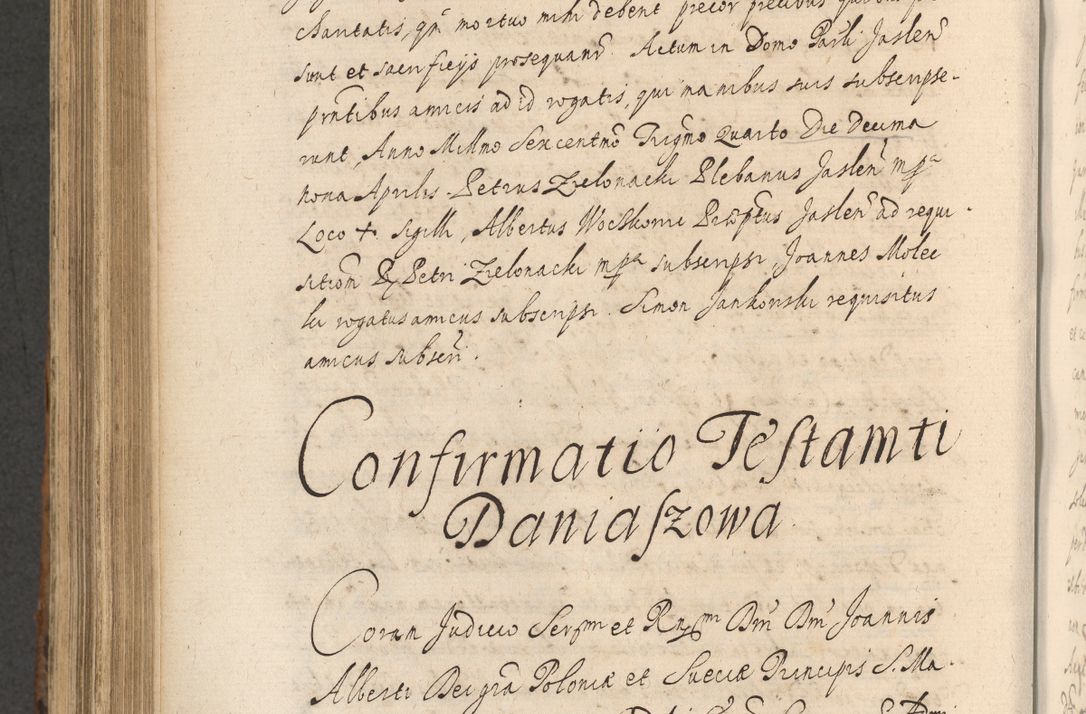 charitatis, qm̃ mortuo mihi debent precor precibus
sunt et sacrificijs prosequanr̃. Actum in Domo Par̃li Jaslen̄
prñtibus amicis ad id rogatis, qui manibus suis subscripse-
runt, Anno Millmo Sexcentmõ Trigmõ Quarto Die Decima
nona Aprilis. Petrus Zielonacki Plebanus Jaslen̄ mpa
Loco + Sigilli, Albertus Præptus Jaslen̄ ad requi-
sitiom̃ Petri Zielonacki mpa subscripsi, Joannes Molec
ki rogatus amicus subscripsi. Simon Jankowski requisitus
amicus subscri.
Confirmatio Testamti
Daniaſzowa
Coram Judicio Sermi et Rndmi Dni Dni Joannis
Alberti Dei grã Poloniæ et Sueciæ Principis S. Ma-